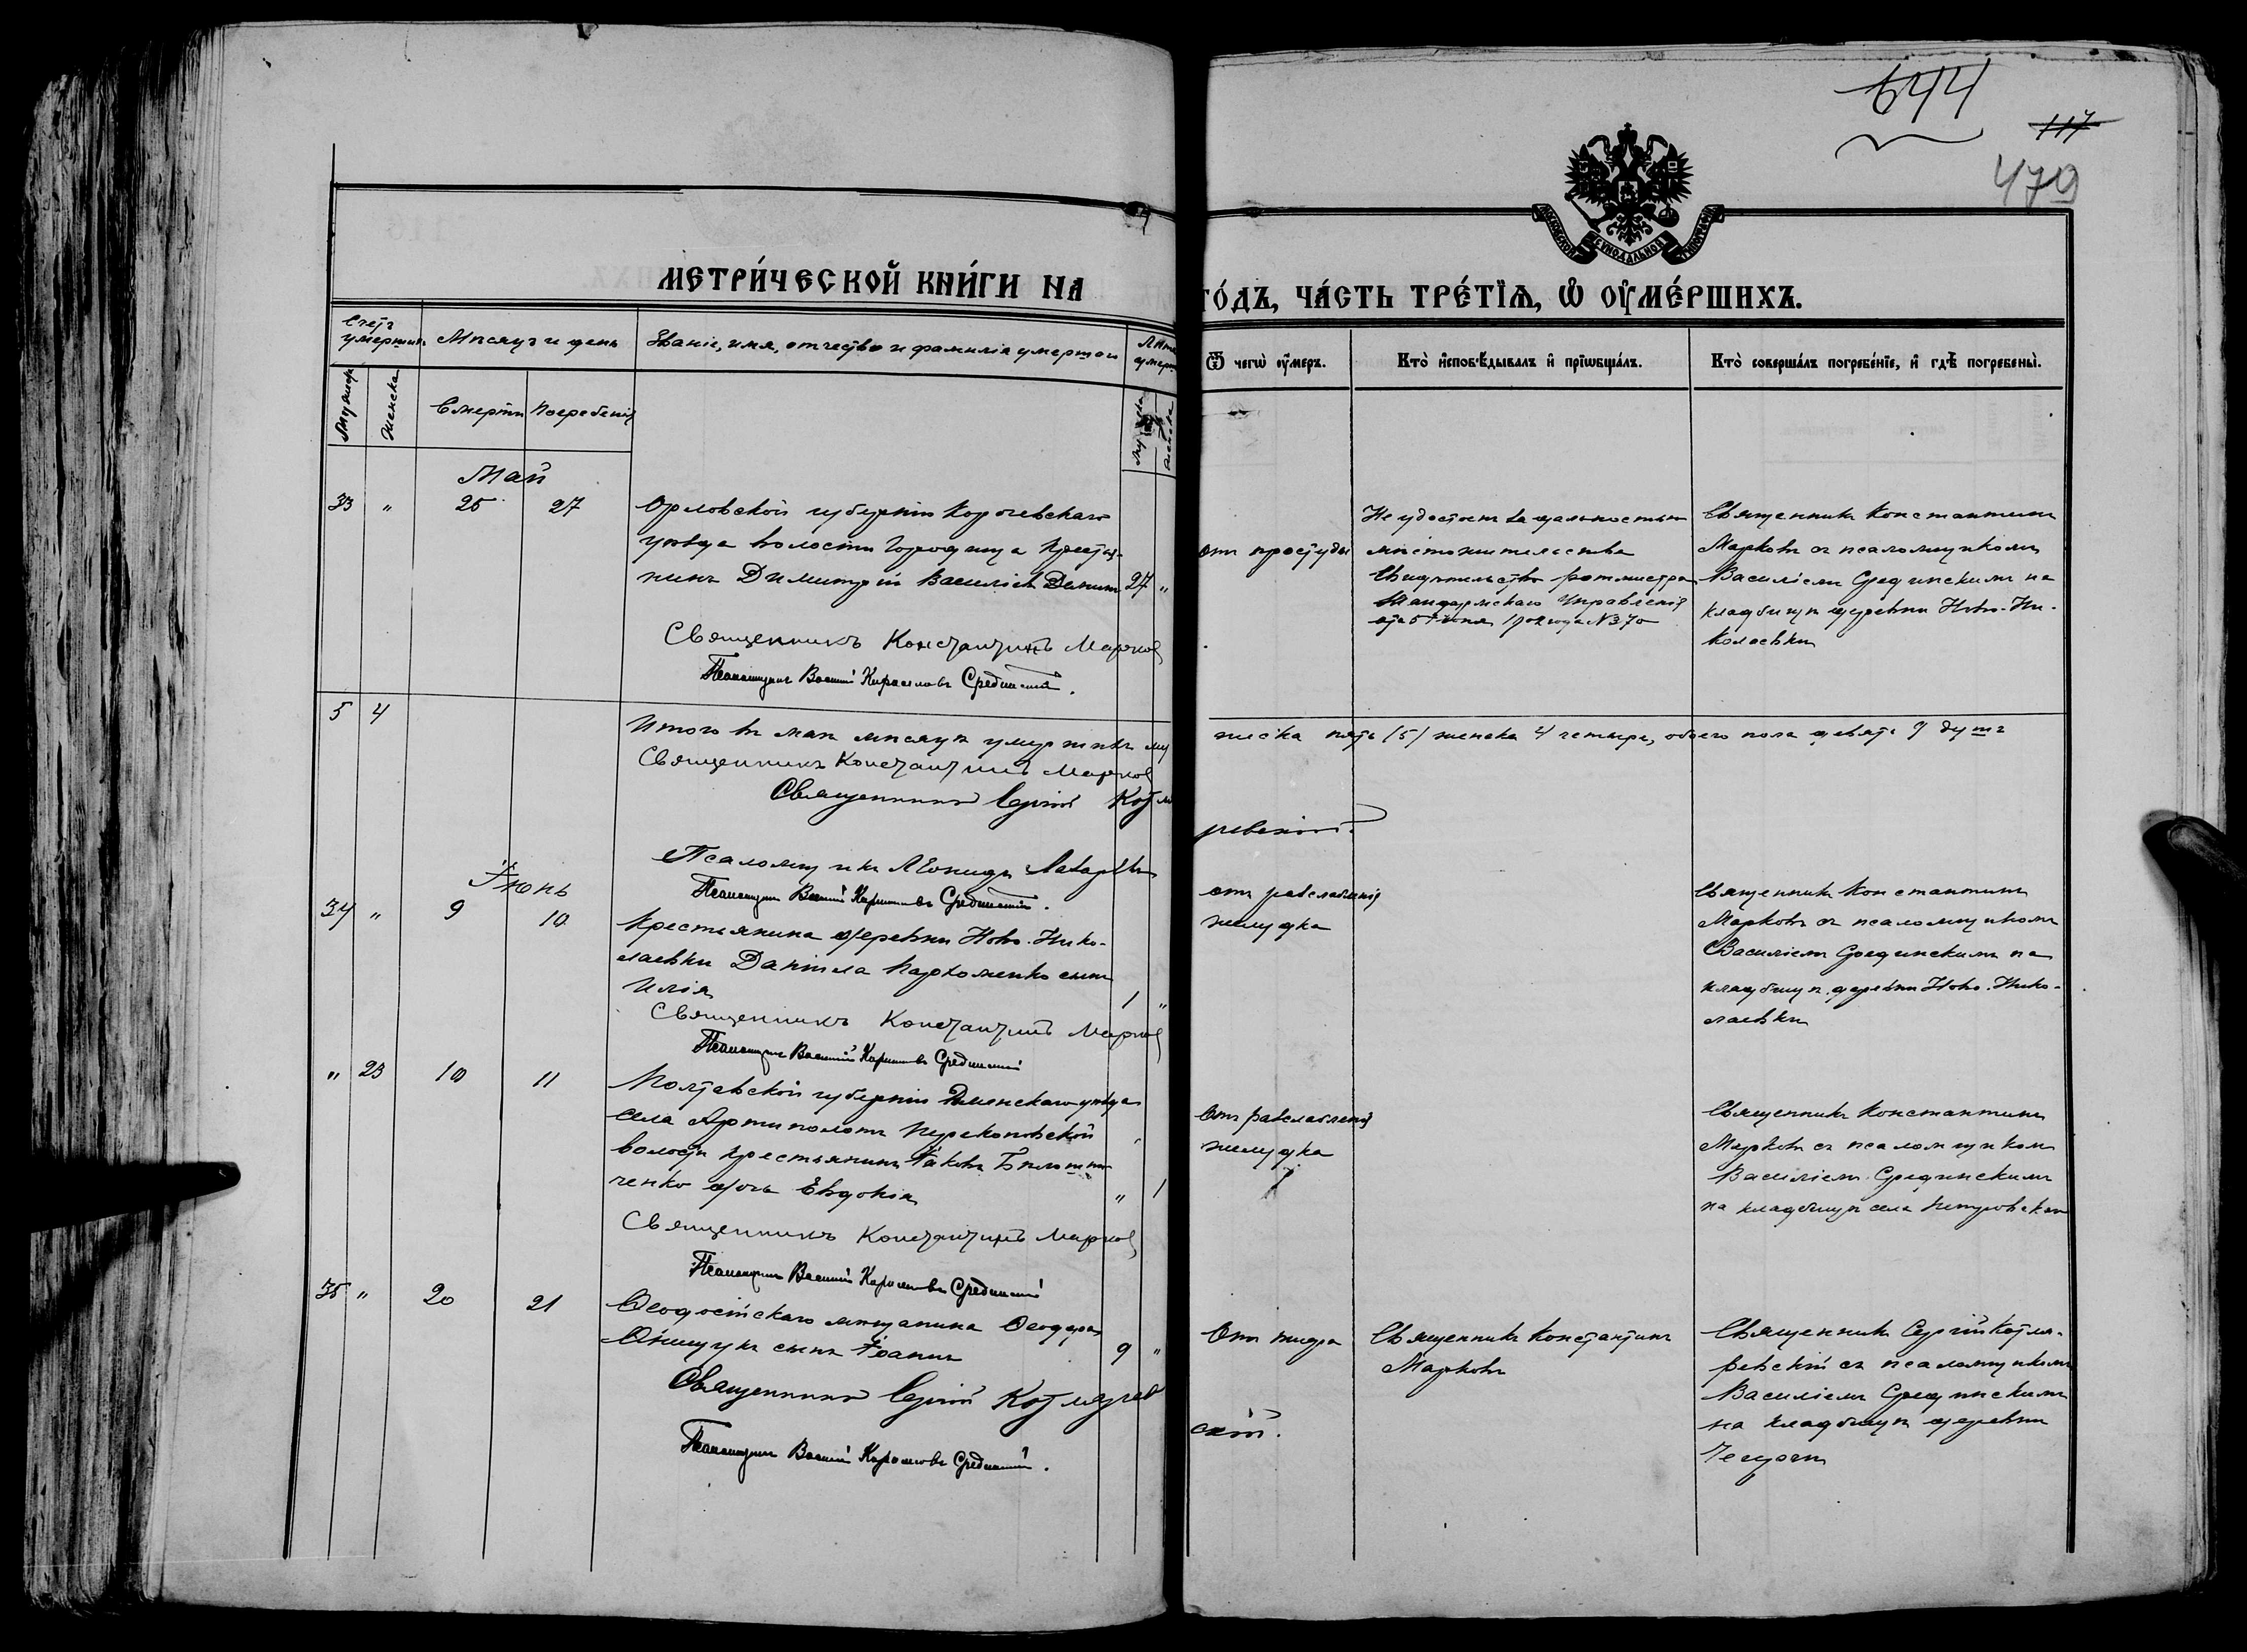 644
117
479
МОСКОВСКОЙ СѴНОДАЛЬНОЙ ТИПОГРАФІИ
МЕТРИ́ЧЕСКОЙ КНИ́ГИ НА
ГО́ДЪ, ЧА́СТЬ ТРЕ́ТІѦ, Ѡ҆ ОУ҆МЕ́РШИХЪ.
Счетъ умершихъ
Мѣсяцъ и день
Званіе, имя, отчество и фамилія умершаго
Лѣта умерш
Ѿ чегѡ̀ оу҆́меръ.
Кто̀ и҆сповѣ́дывалъ и҆ прїѡбща́лъ.
Кто̀ соверша́лъ погребе́нїе, и҆ гдѣ̀ погребены̀.
Мужеск
Женска
Смерти
Погребенія
Май
33 " 25 27
Орловской губерніи Корочевскаго
уѣзда волости Городища Крестья-
нинъ Димитрій Василіевъ
27 "
Священникъ Константинъ Марков
Псаломщикъ Василій Средински.
отъ простуды
Не удостоен за дальностью
мѣстожительства
Свидѣтельство ротмистра
Жандармскаго Управленія
№ 370
Священникъ Константинъ
Марковъ съ псаломщикомъ
Василіемъ Срединскимъ на
кладбищѣ деревни Ново-Ни-
колаевки
5 4
Итого въ маѣ мѣсяцѣ умершихъ му
жеска пять (5) женска 4 четыре, обоего пола девять 9 душъ
Священникъ Константинъ Марков
Священникъ Сергій Котля
ревскій.
Псаломщикъ Леонидъ
Псаломщикъ Василій Срединскій.
Іюнь
34 " 9 10
Крестьянина деревни Ново-Нико-
лаевки Даніила Пархоменко сынъ
Илія
1 "
Священникъ Константинъ Марков
Псаломщикъ Василій Срединскій
отъ разслабленія
желудка
Священникъ Константинъ
Марковъ съ псаломщикомъ
Василіемъ Срединскимъ на
кладбищѣ деревни Ново-Нико-
лаевки
" 23 10 11
Полтавской губерніи уѣзда
села Артиполотъ
волости крестьянина Іакова Бѣлоши
ченко дочь Евдокія
" 1
Священникъ Константинъ Марков
Псаломщикъ Василій Срединскій
Отъ разслабленія
желудка
Священникъ Константинъ
Марковъ съ псаломщикомъ
Василіемъ Срединскимъ
на кладбищѣ села Петровскаго
35 " 20 21
Ѳеодосійскаго мѣщанина Ѳеодора
Онищукъ сынъ Іоаннъ
9 "
Священникъ Сергій Котлярев
скій.
Псаломщикъ Василій Срединскій.
Отъ тифа
Священникъ Константинъ
Марковъ
Священникъ Сергій Котля-
ревскій съ псаломщикомъ
Василіемъ Срединскимъ
на кладбищѣ деревни